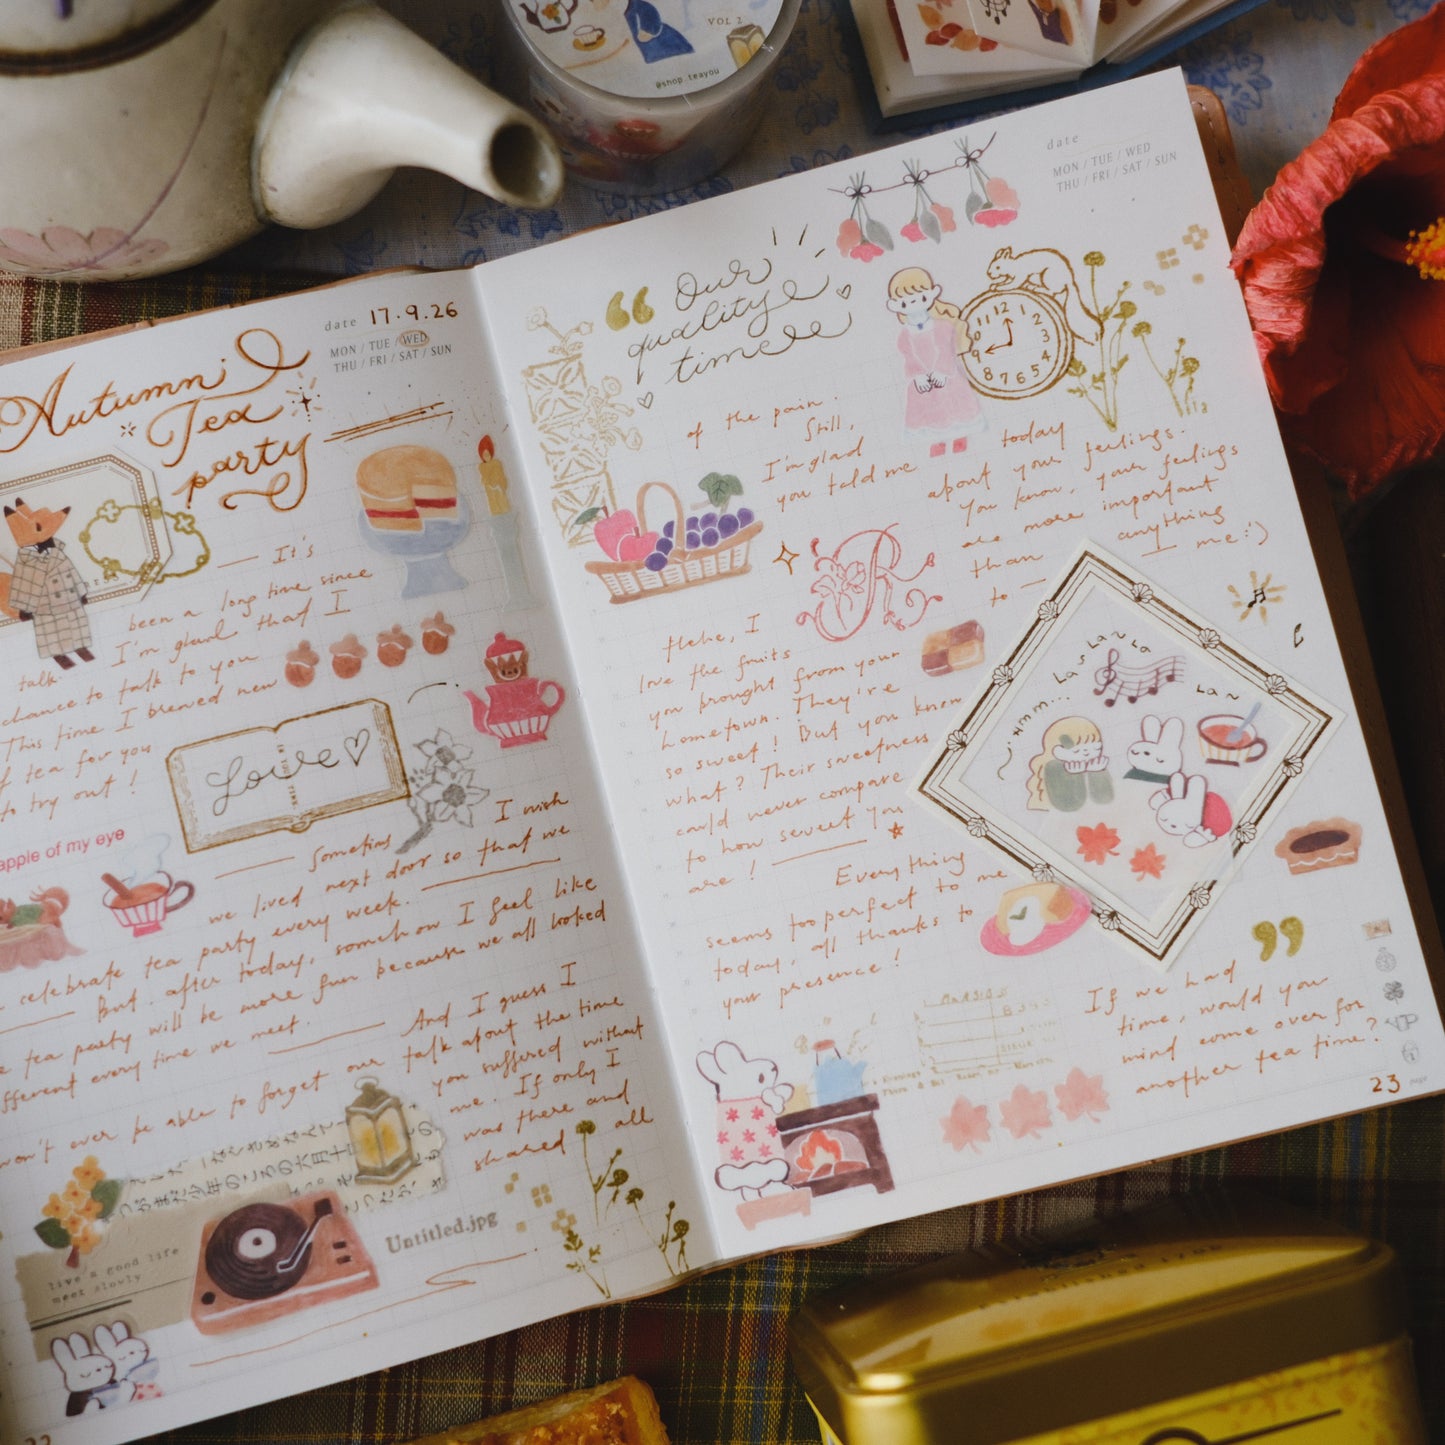 VOL 2
@shop.teayou
date 17.9.26
MON / TUE / WED
THU / FRI / SAT / SUN
Autumn
Tea
party
It's
been a long time since
talk. I'm glad that I
chance to talk to you
This time I brewed new
of tea for you
to try out!
Love
apple of my eye
Sometims I wish
we lived next door so that we
celebrate tea party every week.
But after today, somehow I feel like
tea party will be more fun because we all looked
different every time we meet.
And I guess I
won't ever be able to forget our talk about the time
you suffered without
me. If only I
was there and
shared all
live a good life
meet slowly
Untitled.jpg
22
date
MON / TUE / WED
THU / FRI / SAT / SUN
“ Our
quality
time
of the pain.
Still,
I'm glad
you told me
today
about your feelings.
You know, your feelings
are more important
than anything
to — me :)
12 1 2 3 4 5 6 7 8 9 10 11
R
Hehe, I
love the fruits
you brought from your
hometown. They're
so sweet! But you know
what? Their sweetness
could never compare
to how sweet you
are!
Everything
seems too perfect to me
today, all thanks to
your presence!
Hmm... La~ La~ La
La~
”
If we had
time, would you
mind come over for
another tea time?
23 page